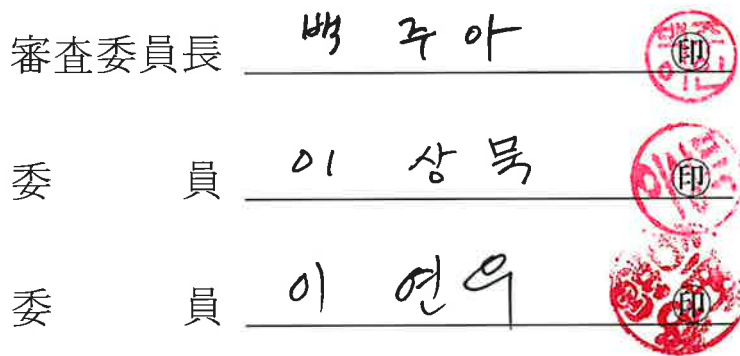 審査委員長 백주아 印
委員 이상묵 印
委員 이연우 印